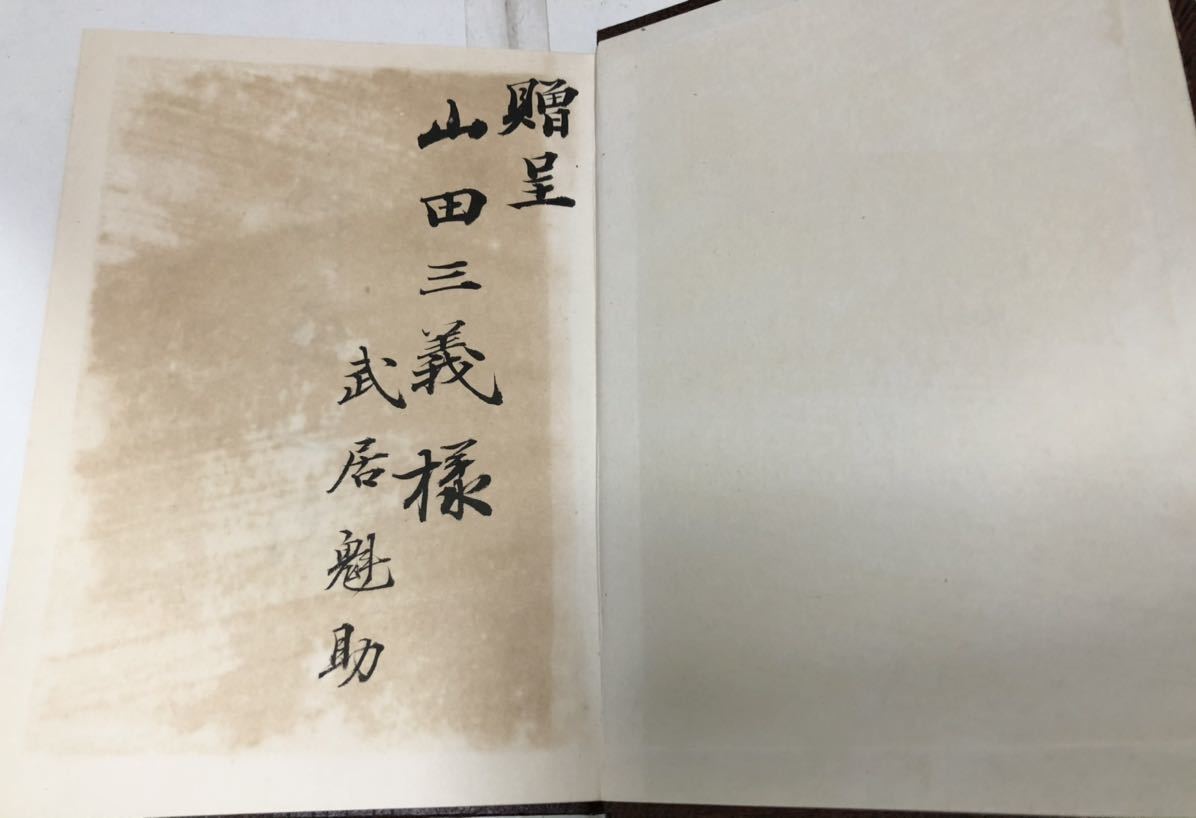 贈呈
山田三義様
武居魁助